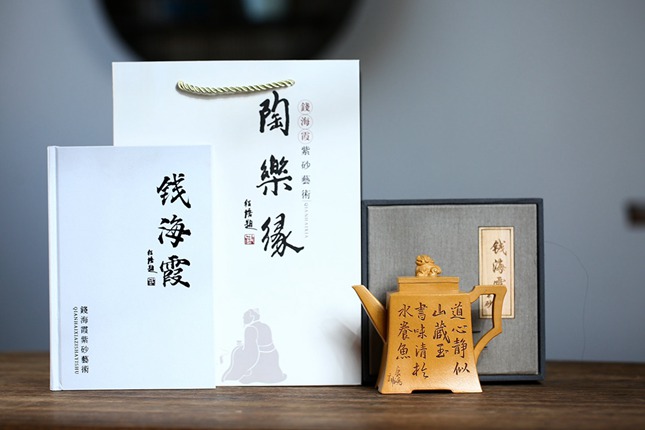 钱海霞
钱海霞紫砂藝術
QIANHAIXIAZISHAYISHU
陶樂缘
錢海霞紫砂藝術
道心静似
山藏玉
書味清於
水養魚
钱海霞